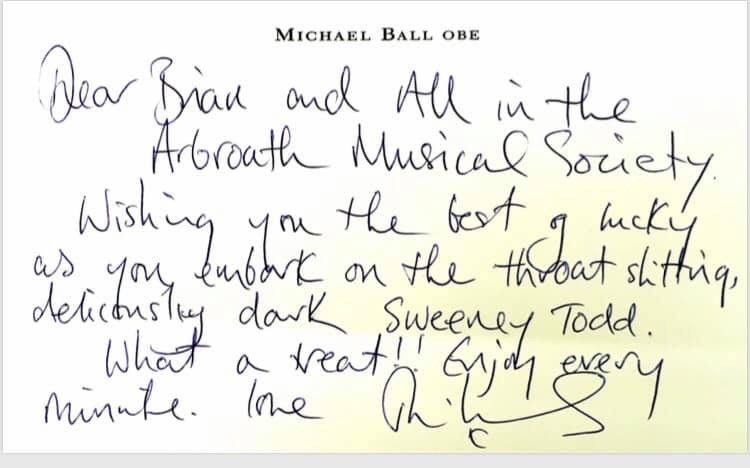 MICHAEL BALL OBE
Dear Brian and All in the
Arbroath Musical Society.
Wishing you the best of lucky
as you embark on the throat slitting,
deliciously dark Sweeney Todd.
What a treat!! Enjoy every
minute. love